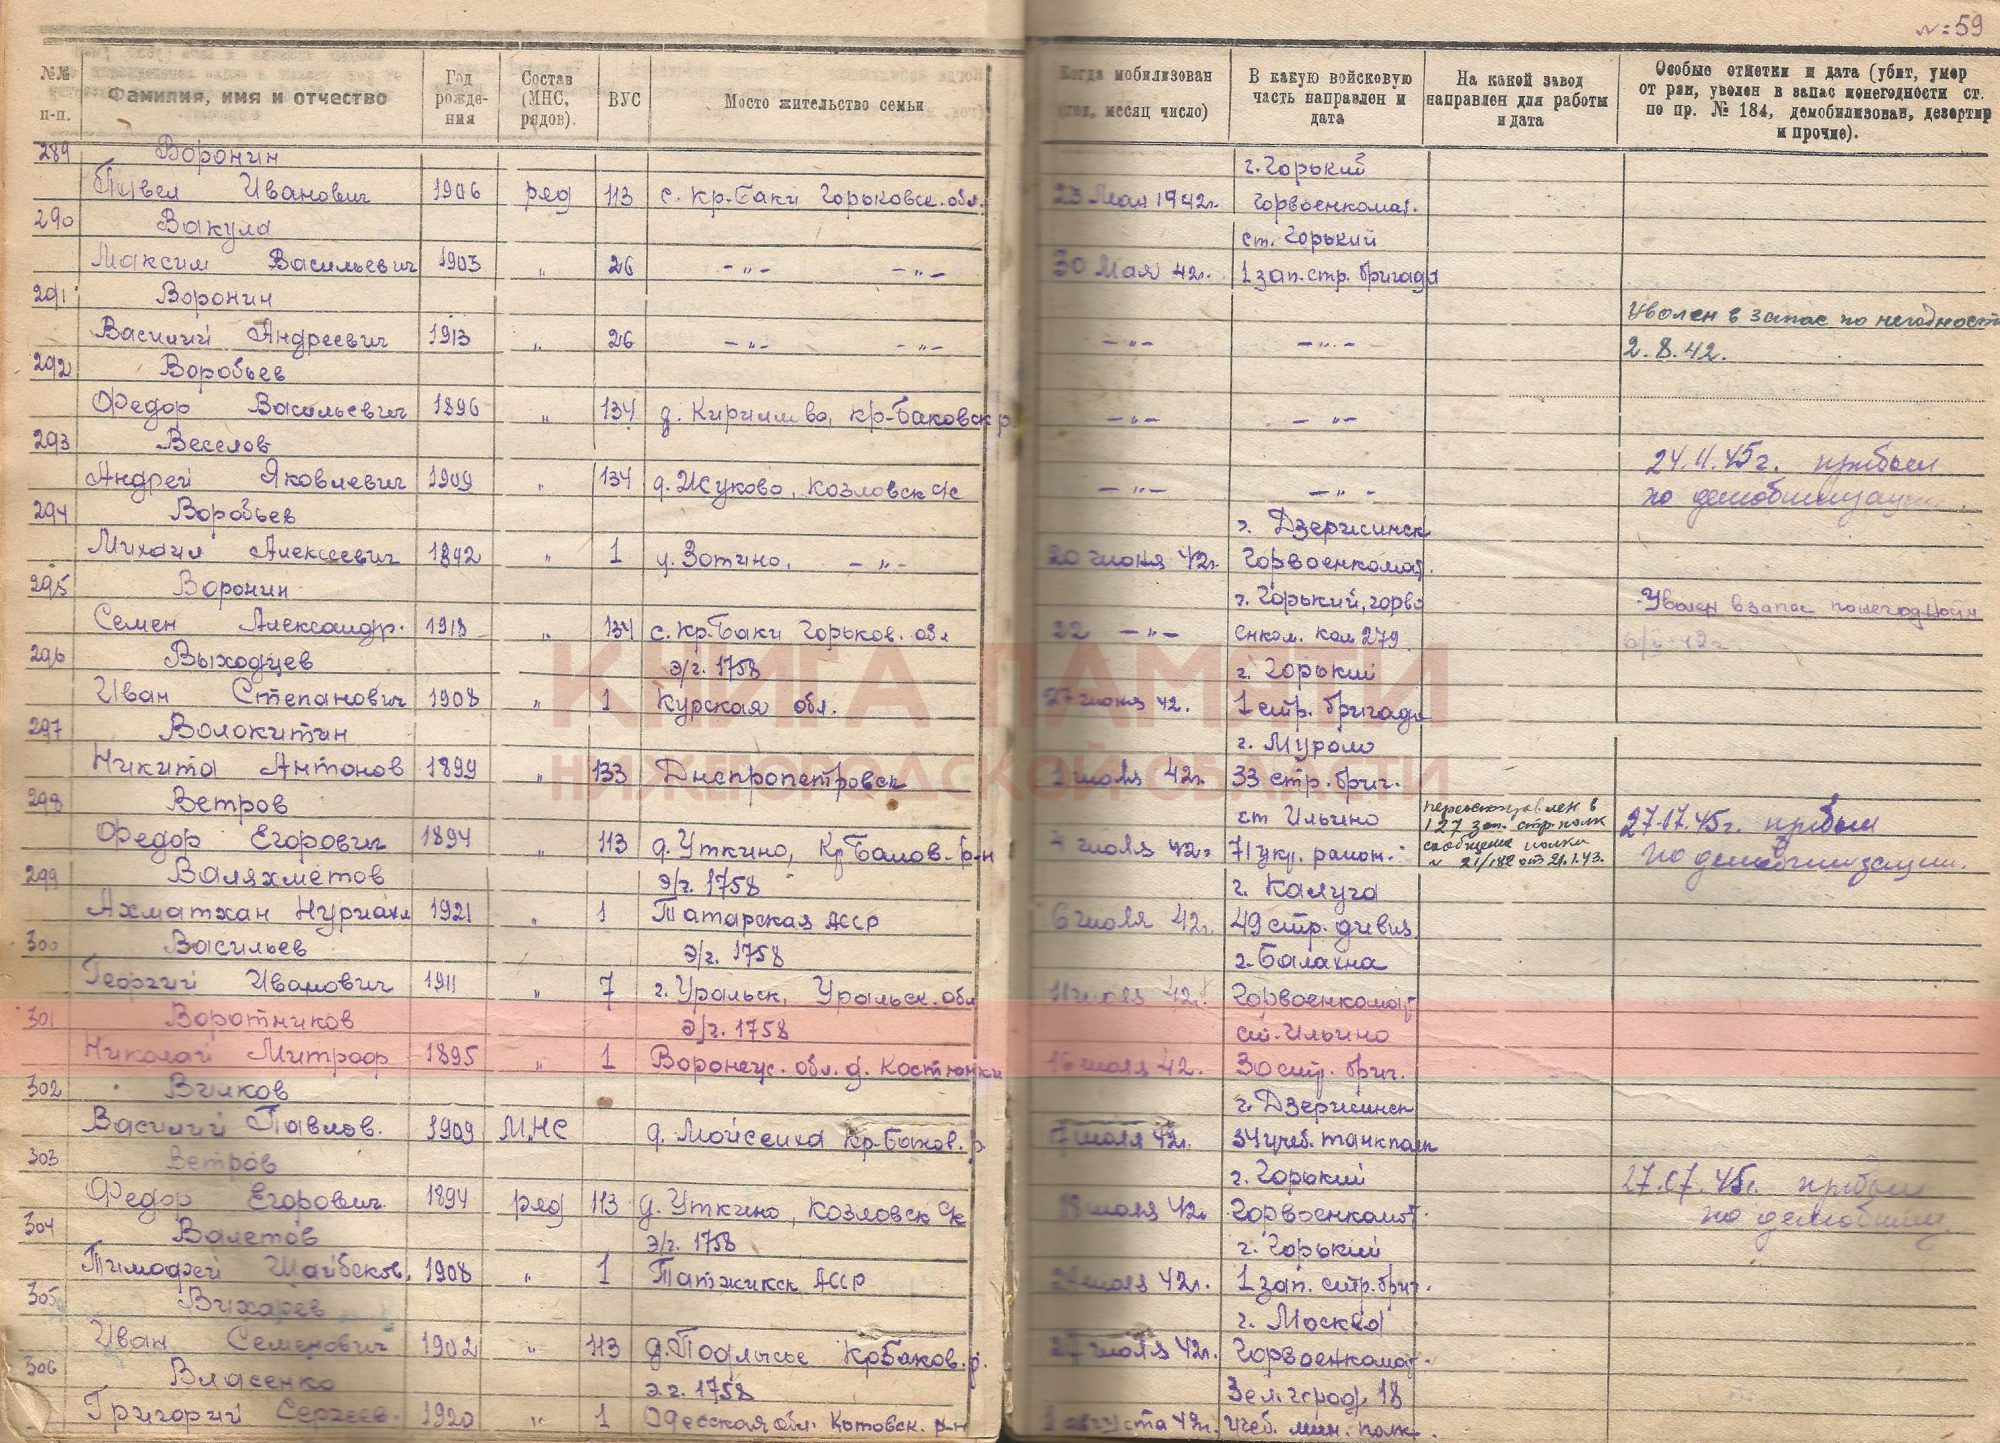 № 59
№№ п-п.
Фамилия, имя и отчество
Год рожде- ния
Состав (МНС, рядов).
ВУС
Мосто жительство семьи
Когда мобилизован (год, месяц число)
В какую войсковую часть направлен и дата
На какой завод направлен для работы и дата
Особые отметки и дата (убит, умер от ран, уволен в запас понегодности ст. по пр. № 184, демобилизован, дезертир и прочие).
289 Воронин г. Горький
Павел Иванович 1906 ряд 113 с. Кр-Баки Горьковск. обл. 23 Мая 1942г. Горвоенкомат.
290 Вакула ст. Горький
Максим Васильевич 1903 „ 26 -„- -„- 30 Мая 42г. 1 зап. стр. бригада
291 Воронин Уволен в запас по негодности
Василий Андреевич 1913 „ 26 -„- -„- -„- -„- 2.8.42.
292 Воробьев
Федор Васильевич 1896 „ 134 д. Кирилково, Кр-Баковск р. -„- -„-
293 Веселов 24.11.45г. прибыл
Андрей Яковлевич 1909 „ 134 д. Жуково, Козловск с/с -„- -„- по демобилизации.
294 Воробьев г. Дзержинск
Михаил Алексеевич 1892 „ 1 д. Зотино, -„- 20 июня 42г. Горвоенкомат.
295 Воронин г. Горький, горво
Семен Александр. 1918 „ 134 с. Кр-Баки Горьков. обл 22 -„- енком. ком 279 Уволен в запас
296 Выходцев э/г. 1758 г. Горький
Иван Степанович 1908 „ 1 Курская обл. 27 июня 42. 1 стр. бригада
297 Волокитин г. Муром
Никита Антонов 1899 „ 133 Днепропетровск 1 июля 42г. 33 стр. бриг.
298 Ветров ст Ильино переотправлен в 127 зап. стр. полк 27.07.45г. прибыл
Федор Егорович 1894 „ 113 д. Уткино, Кр Баков. р-н 4 июля 42г 71 укр. район. сообщение полка № 21/182 от 21.1.43. по демобилизации.
299 Валяхметов э/г. 1758 г. Калуга
Ахматхан Нуриахм 1921 „ 1 Татарская АССР 6 июля 42г. 49 стр. дивиз.
300 Васильев э/г. 1758 г. Балахна
Георгий Иванович 1911 „ 7 г. Уральск, Уральск. обл 11 июля 42г. Горвоенкомат
301 Воротников э/г. 1758 ст. Ильино
Николай Митроф 1895 „ 1 Воронеж. обл. д. Костюнки 16 июля 42. 30 стр. бриг.
302 Вилков г. Дзержинск
Василий Павлов. 1909 МНС д. Мойсеиха Кр-Баков. р. 17 июля 42г. 34 учеб. танкполк
303 Ветров г. Горький 27.07.45г. прибыл
Федор Егорович 1894 ряд 113 д. Уткино, Козловск с/с 18 июля 42г Горвоенкомат. по демобилиз.
304 Валетов э/г. 1758 г. Горький
Тимофей Шайбеков. 1908 „ 1 Татжикск АССР 24 июля 42г. 1 зап. стр. бриг.
305 Вихарев г. Москва
Иван Семенович 1902 „ 113 д. Подлысье Кр Баков. р. 27 июля 42г. Горвоенкомат.
306 Власенко э.г. 1758 Зел. город, 18
Григорий Сергеев. 1920 „ 1 Одесская обл. Котовск. р-н 1 августа 42г. учеб. мин. полк.
КНИГА ПАМЯТИ
НИЖЕГОРОДСКОЙ ОБЛАСТИ